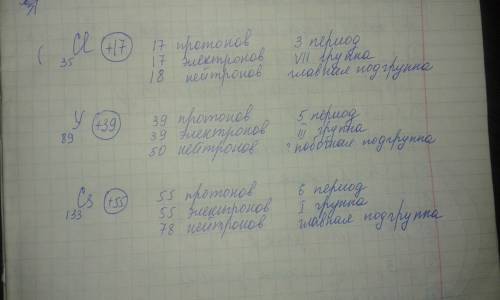 Cl +17 17 протонов 3 период
17 электронов VII группа
35 18 нейтронов главная подгруппа
У +39 39 протонов 5 период
39 электронов III группа
89 50 нейтронов побочная подгруппа
Cs +55 55 протонов 6 период
55 электронов I группа
133 78 нейтронов главная подгруппа